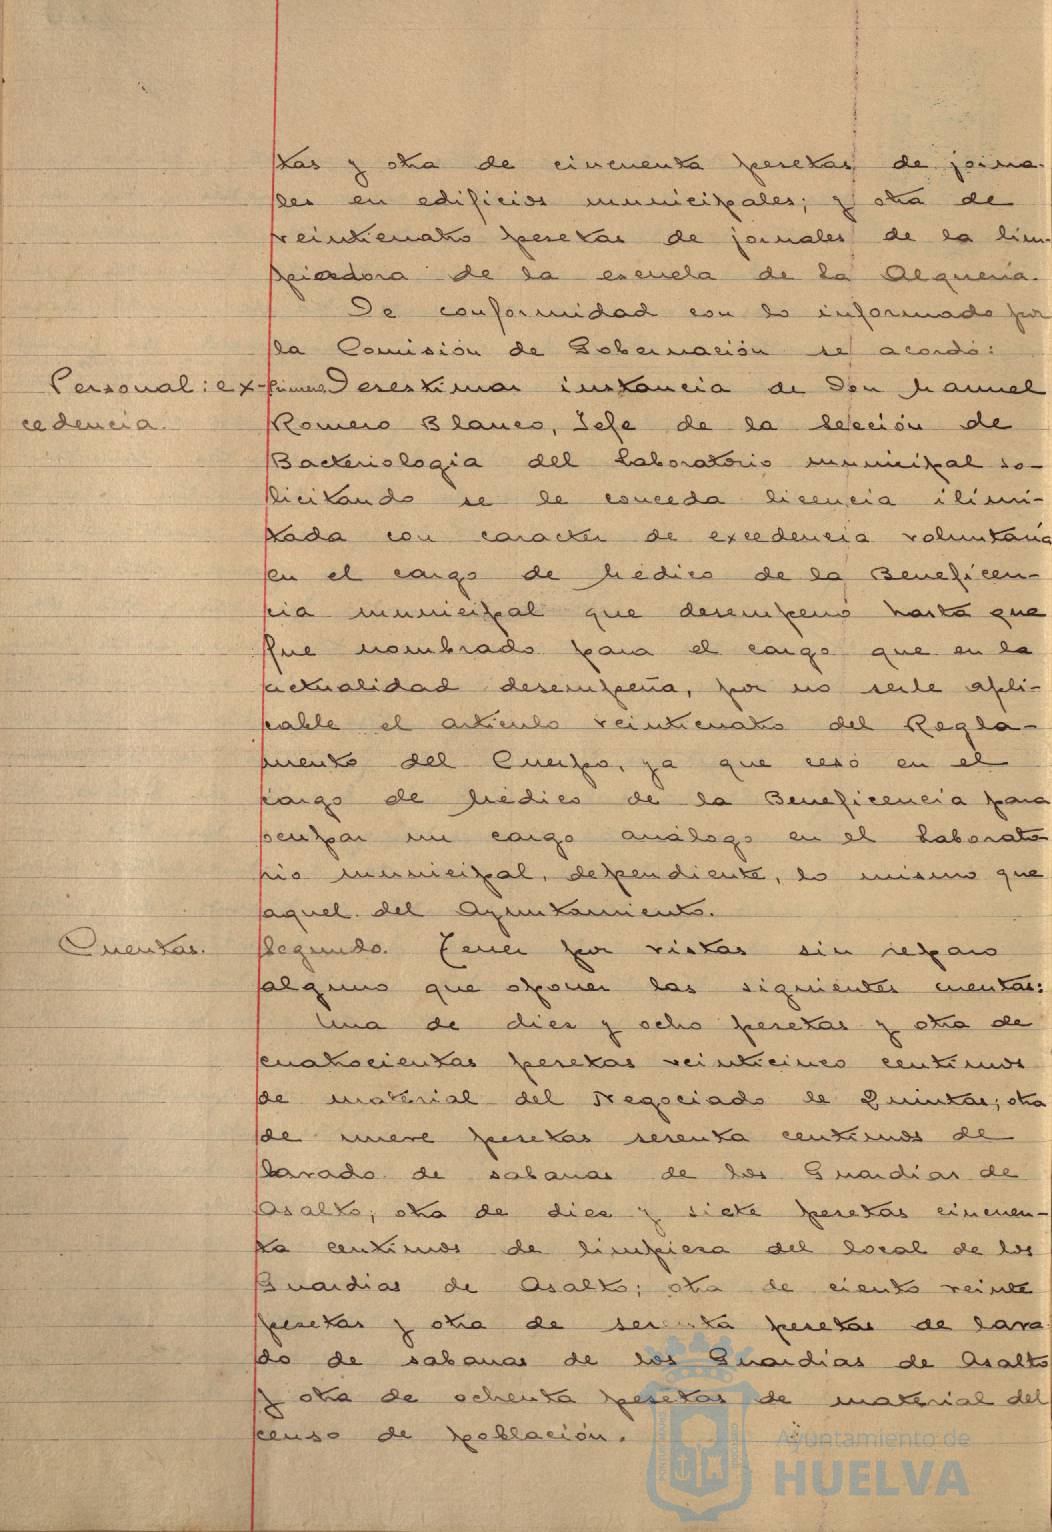 tas y otra de cincuenta pesetas de jorna-
les en edificios municipales; y otra de
veinticuatro pesetas de jornales de la lim-
piadora de la escuela de la Alquería.
De conformidad con lo informado por
la Comisión de Gobernación se acordó:
Personal: ex- Primero Desestimar instancia de Don Manuel
cedencia. Romero Blanco, Jefe de la Sección de
Bacteriologia del Laboratorio municipal so-
licitando se le conceda licencia ilimi-
tada con caracter de excedencia voluntaria
en el cargo de Médico de la Beneficen-
cia municipal que desempeñó hasta que
fue nombrado para el cargo que en la
actualidad desempeña, por no serle apli-
cable el artículo veinticuatro del Regla-
mento del Cuerpo, ya que cesó en el
cargo de Médico de la Beneficencia para
ocupar un cargo análogo en el Laborato
rio municipal, dependiente, lo mismo que
aquel del Ayuntamiento.
Cuentas. Segundo. Tener por vistas sin reparo
alguno que oponer las siguientes cuentas:
Una de diez y ocho pesetas y otra de
cuatrocientas pesetas veinticinco centimos
de material del Negociado de Quintas; otra
de nueve pesetas sesenta centimos de
lavado de sabanas de los Guardias de
Asalto; otra de diez y siete pesetas cincuen-
ta centimos de limpieza del local de los
Guardias de Asalto; otra de ciento veinte
pesetas y otra de pesetas de lava
do de sabanas de los Guardias de Asalto
y otra de ochenta pesetas de material del
censo de población.
Ayuntamiento de
HUELVA